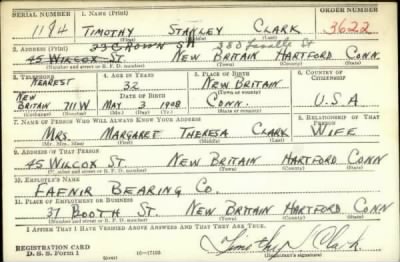 SERIAL NUMBER 1. NAME (Print) ORDER NUMBER
1184 TIMOTHY STANLEY CLARK 3622
(First) (Middle) (Last)
2. ADDRESS (Print) 33 CROWN ST 380 St
45 WILCOX ST. NEW BRITAIN HARTFORD CONN.
(Number and street or R. F. D. number) (Town) (County) (State)
3. TELEPHONE 4. AGE IN YEARS 5. PLACE OF BIRTH 6. COUNTRY OF CITIZENSHIP
NEAREST 32 NEW BRITAIN
DATE OF BIRTH (Town or county)
NEW BRITAIN 711W MAY 3 1908 CONN. U.S.A
(Exchange) (Number) (Mo.) (Day) (Yr.) (State or country)
7. NAME OF PERSON WHO WILL ALWAYS KNOW YOUR ADDRESS 8. RELATIONSHIP OF THAT PERSON
MRS. MARGARET THERESA CLARK WIFE
(Mr., Mrs., Miss) (First) (Middle) (Last)
9. ADDRESS OF THAT PERSON
45 WILCOX ST. NEW BRITAIN HARTFORD CONN
(Number and street or R. F. D. number) (Town) (County) (State)
10. EMPLOYER'S NAME
FAFNIR BEARING CO.
11. PLACE OF EMPLOYMENT OR BUSINESS
37 BOOTH ST. NEW BRITAIN HARTFORD CONN
(Number and street or R. F. D. number) (Town) (County) (State)
I AFFIRM THAT I HAVE VERIFIED ABOVE ANSWERS AND THAT THEY ARE TRUE.
REGISTRATION CARD
D. S. S. Form 1 (over) 16—17105 Timothy Clark
(Registrant's signature)